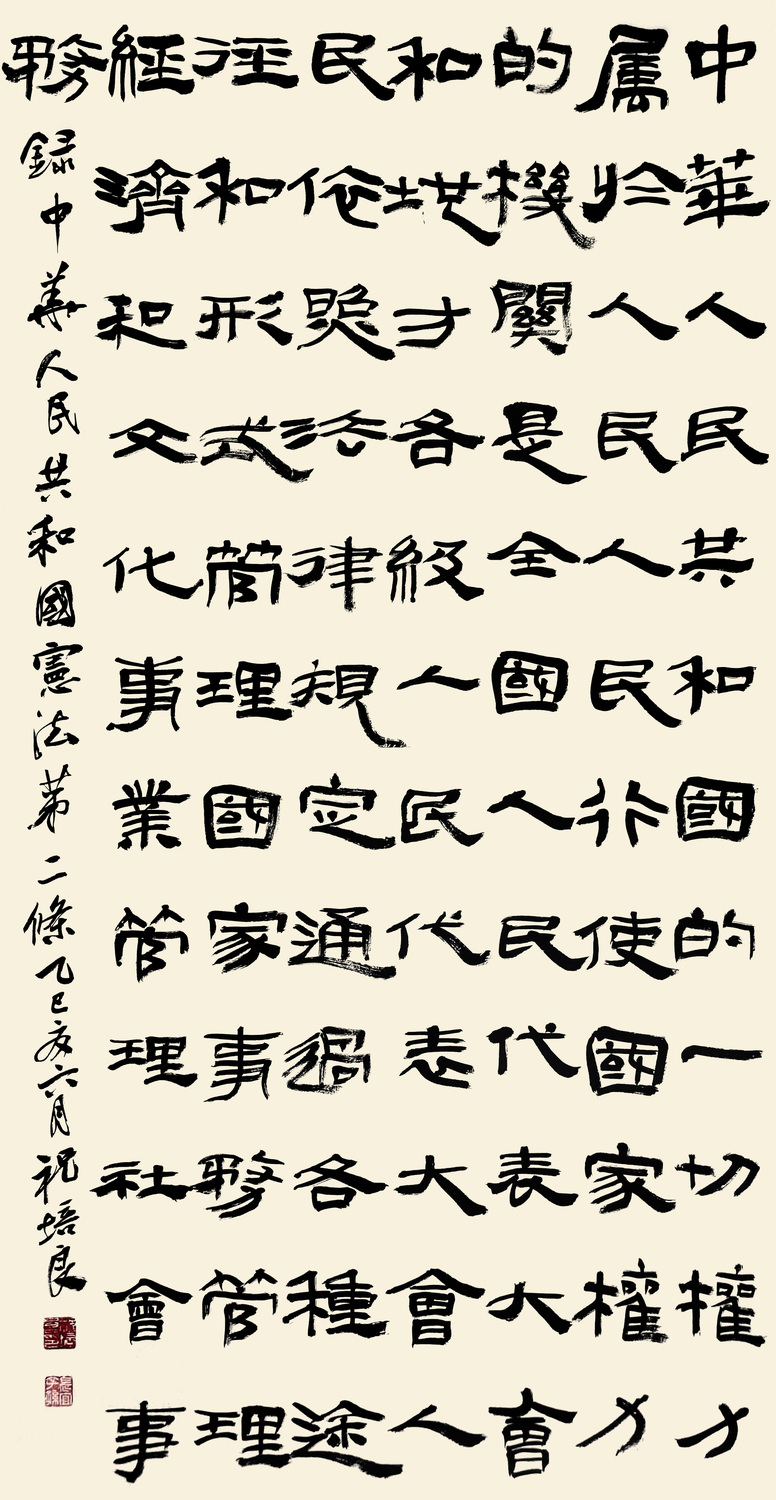 中華人民共和國的一切權力
属於人民人民行使國家權力
的機關是全國人民代表大會
和地方各級人民代表大會人
民依照法律規定通過各種途
徑和形式管理國家事務管理
經濟和文化事業管理社會事
務
録中華人民共和國憲法第二條乙巳夏六月祝培良